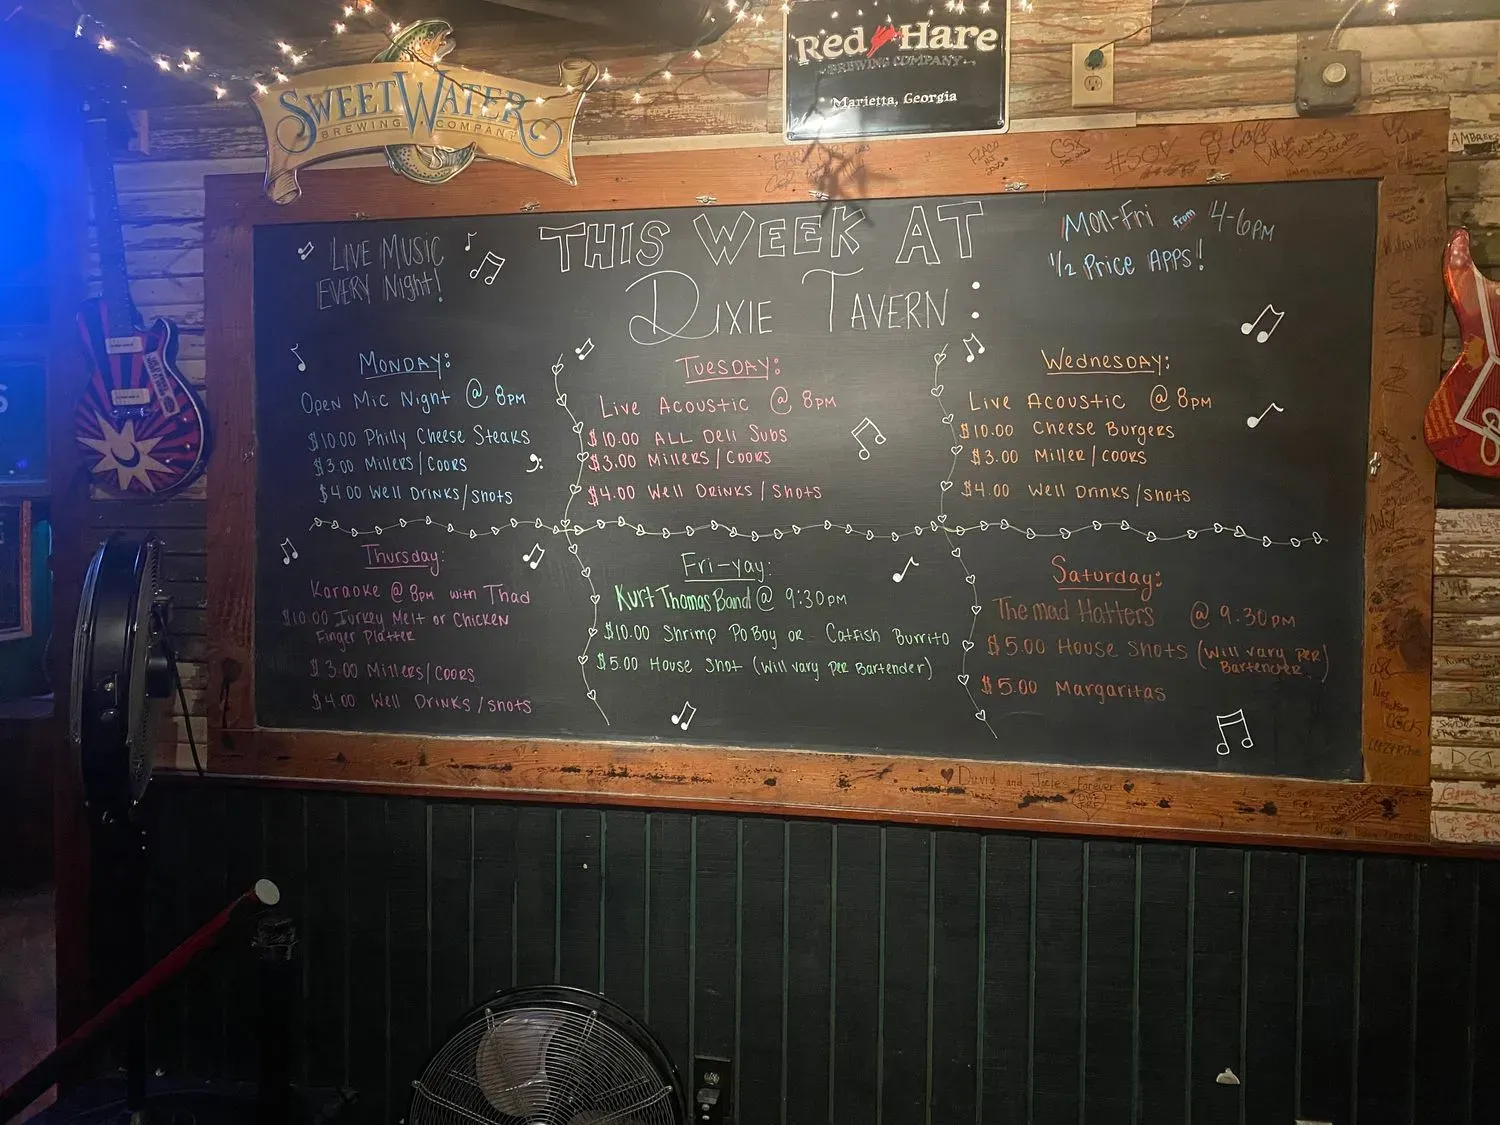 SWEETWATER
BREWING COMPANY
Red Hare
BREWING COMPANY
Marietta, Georgia
LIVE MUSIC
EVERY Night!
THIS WEEK AT
DIXIE TAVERN:
MON-Fri from 4-6PM
1/2 Price APPS!
MONDAY:
OPEN MIC Night @ 8PM
$10.00 Philly Cheese Steaks
$3.00 Millers/Coors
$4.00 Well Drinks/shots
TUESDAY:
Live Acoustic @ 8PM
$10.00 ALL Deli Subs
$3.00 Millers/Coors
$4.00 Well Drinks/Shots
Wednesday:
Live Acoustic @ 8PM
$10.00 Cheese Burgers
$3.00 Miller/Coors
$4.00 Well Drinks/shots
Thursday:
Karaoke @ 8PM with Thad
$10.00 Turkey Melt or Chicken
Finger Platter
$3.00 Millers/Coors
$4.00 Well Drinks/shots
Fri-yay:
Kurt Thomas Band @ 9:30PM
$10.00 Shrimp Po Boy or Catfish Burrito
$5.00 House Shot (Will vary Per Bartender)
Saturday:
The mad Hatters @ 9:30PM
$5.00 House Shots (Will vary PER
Bartender)
$5.00 Margaritas
David and Jule Forever